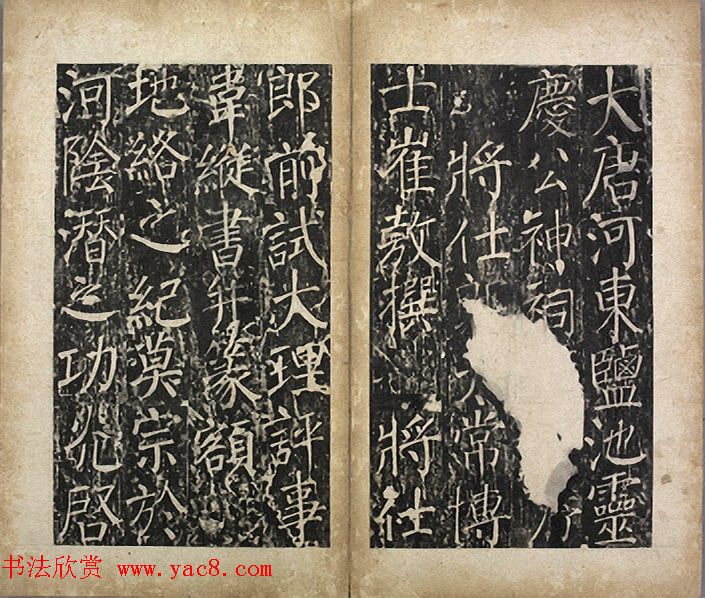 大唐河東鹽池靈
慶公神祠
將仕常博
士崔敖撰將仕
郎前試大理評事
韋縱書并篆額
地絡之紀莫宗於
河陰潛之功允啓
书法欣赏 www.yac8.com